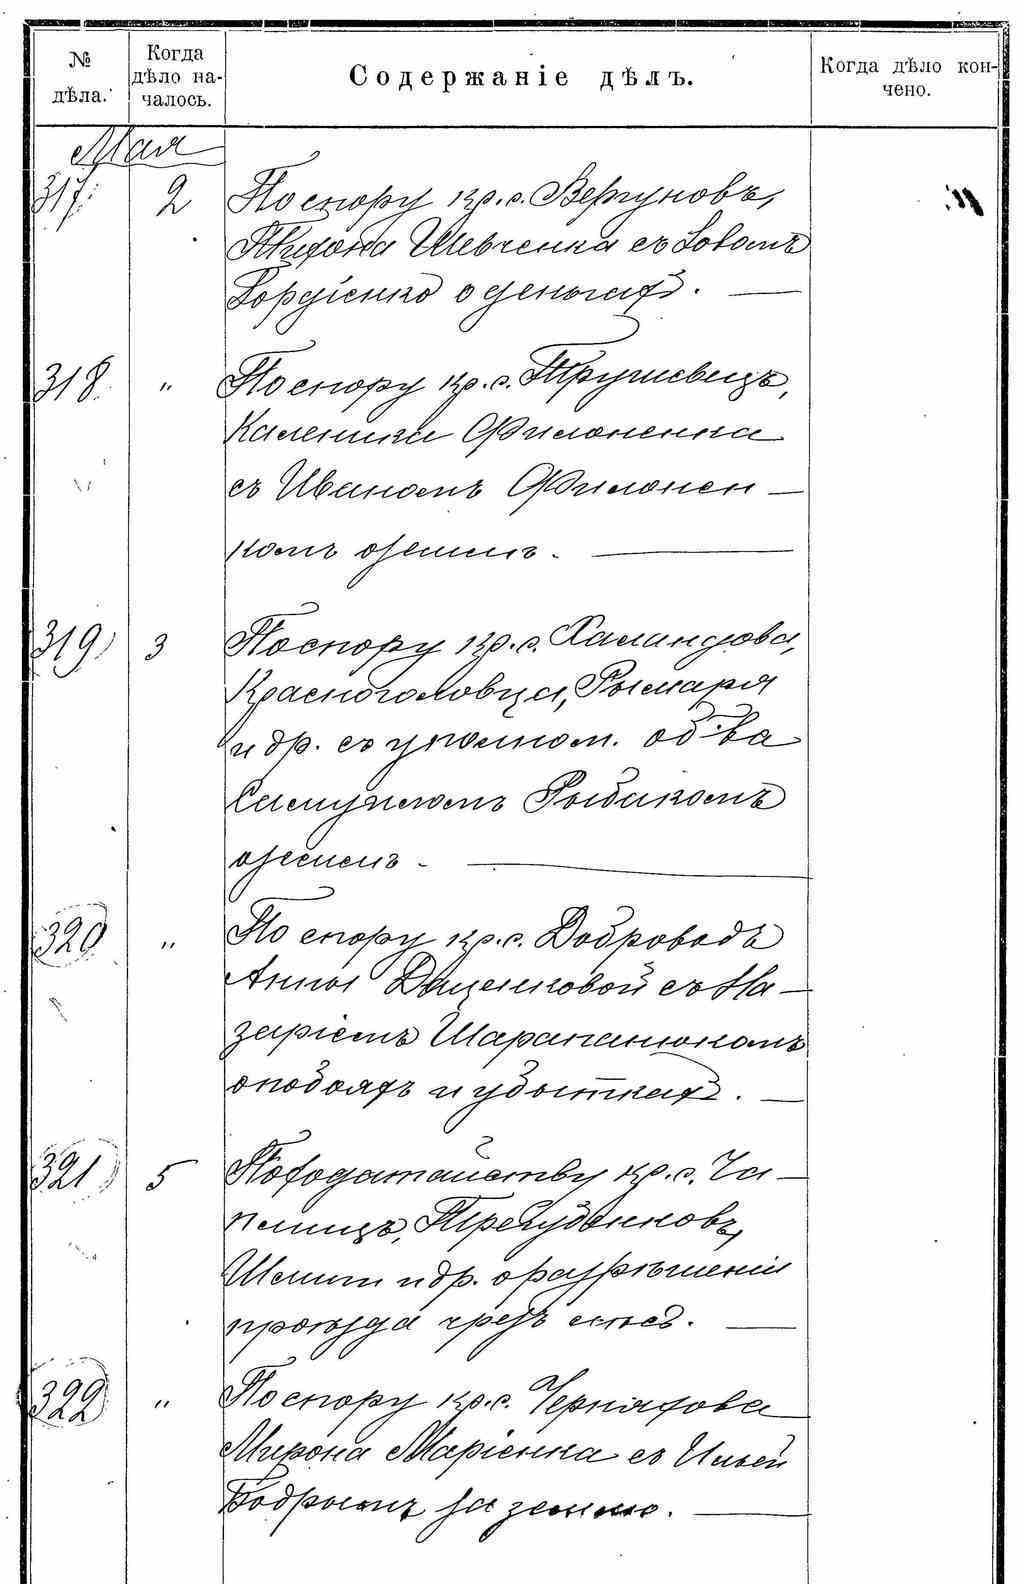 № дѣла.
Когда дѣло началось.
Содержаніе дѣлъ.
Когда дѣло кончено.
Мая
317. 2 По спору кр. с. Вергуновъ,
Тифона Шевченка съ Iовомъ
Гордіенко о деньгахъ.
318. " По спору кр. с. Трушевецъ,
Каленика Филоненка
съ Иваномъ Филонен-
комъ о землѣ.
319) 3 По спору кр. с. Халаидова,
Красноголовца, Рымаря
и др. съ уполном. об-ва
Самуиломъ Рыбакомъ
о землѣ.
320 " По спору кр. с. Доброводъ
Анны Даценковой съ На-
заріемъ Шарапанюкомъ
о побояхъ и убыткахъ.
321 5 По ходатайству кр. с. Ча-
плищъ, Трегубенковъ,
Шелими и др. о разрѣшеніи
проѣзда чрезъ лѣсъ.
322 " По спору кр. с. Черняхова
Мирона Марiенка съ Ильей
Бодрымъ за землю.